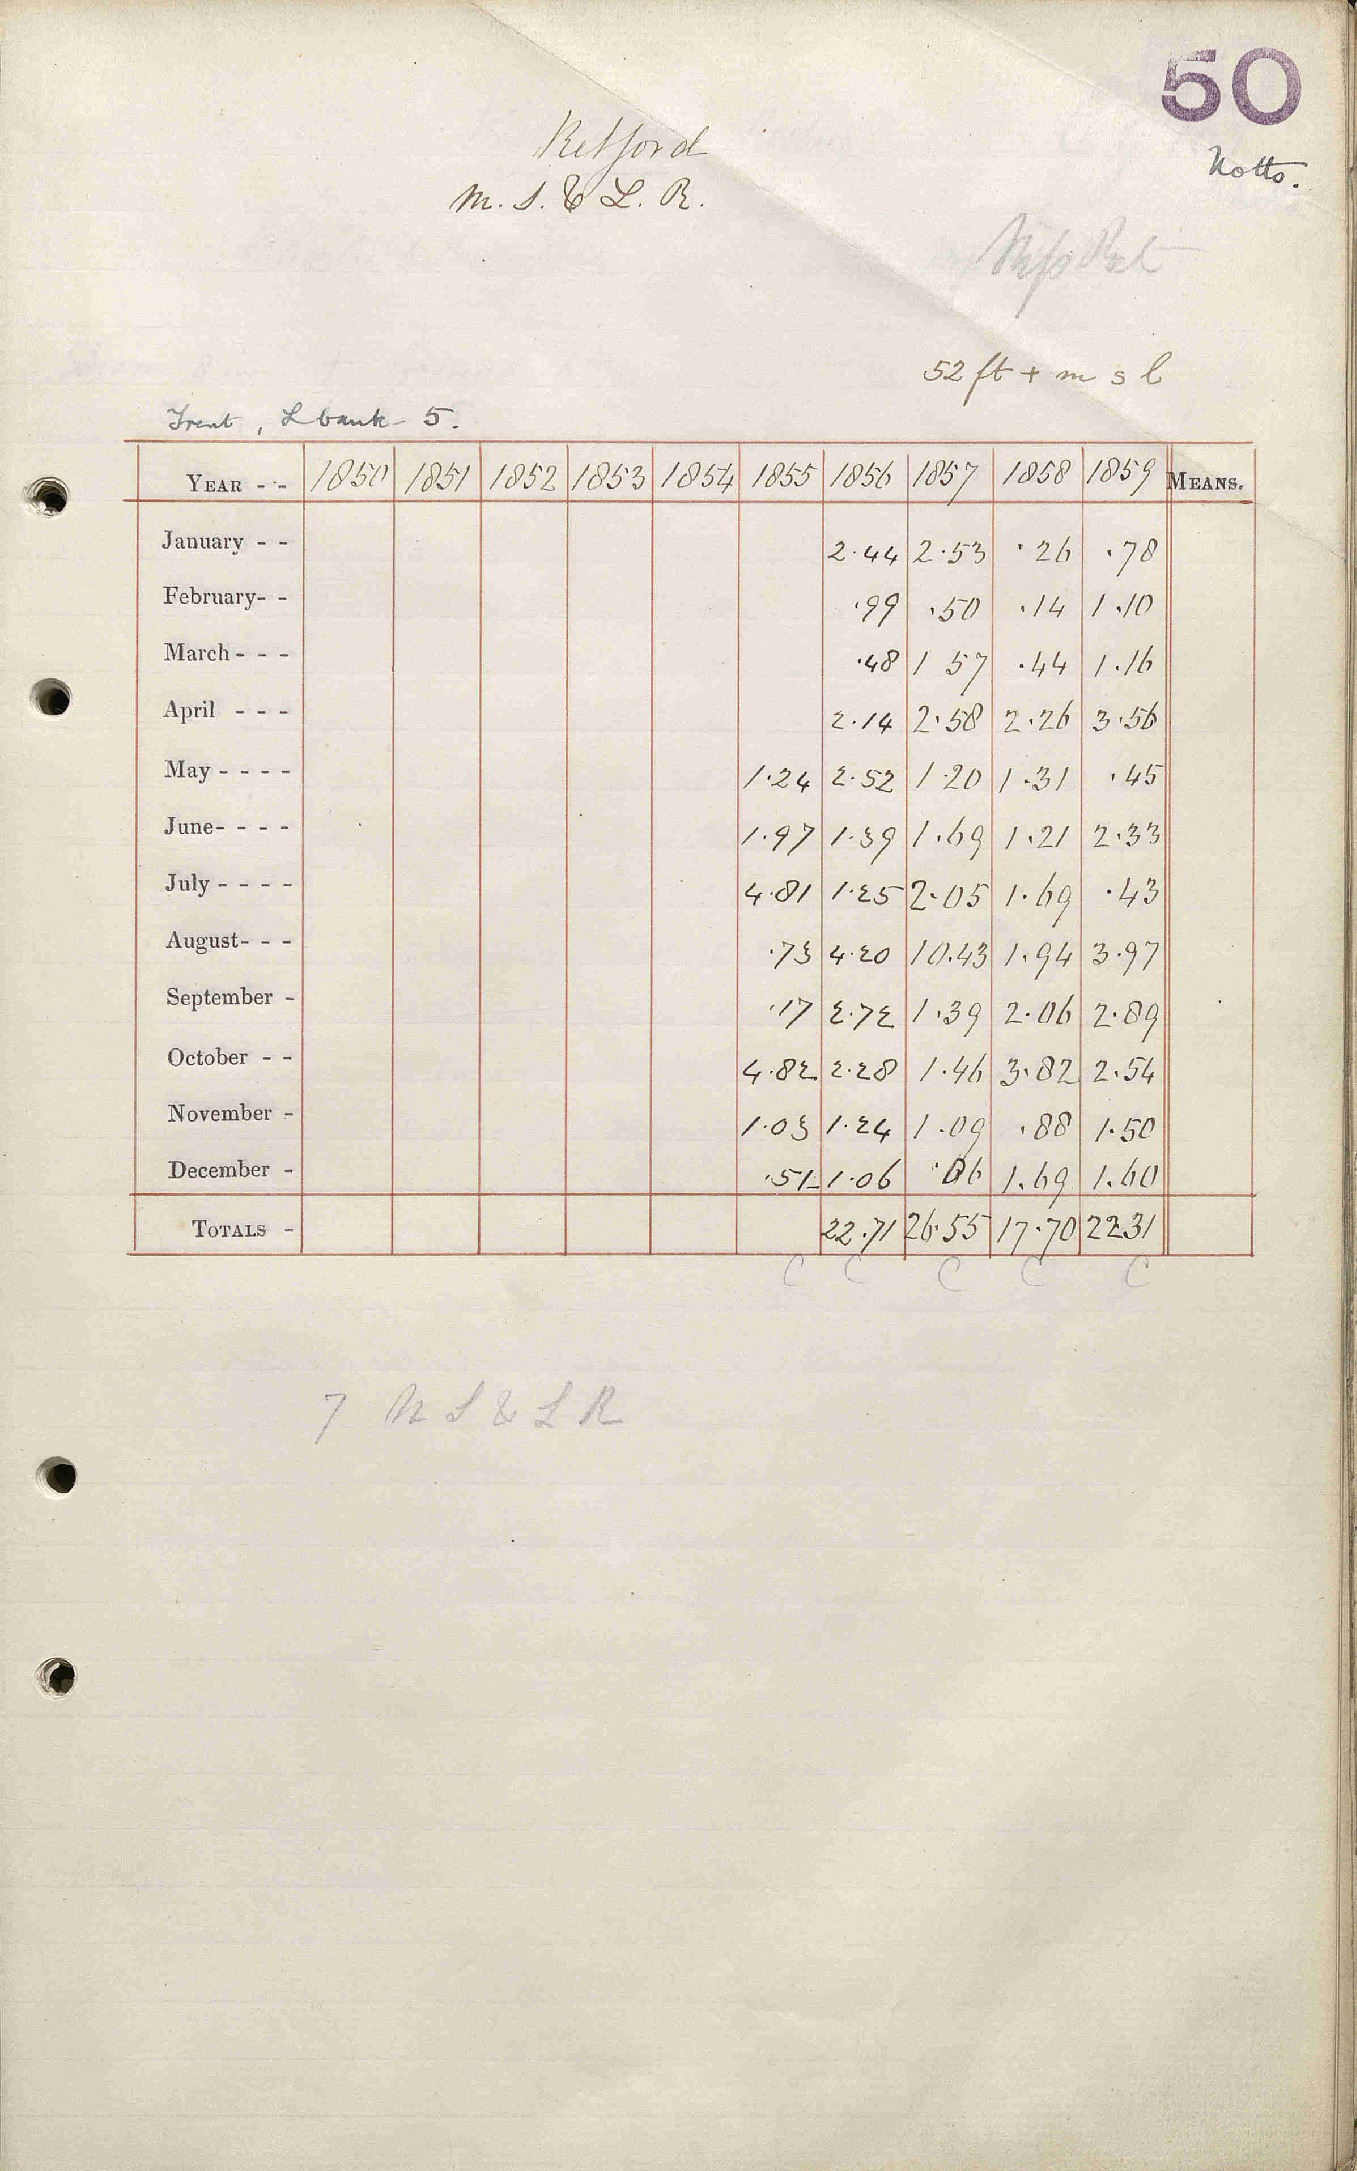 50
Notts.
Retford
M. S. & L. R.
52 ft + m s l
Trent, L bank - 5.
YEAR - - 1850 1851 1852 1853 1854 1855 1856 1857 1858 1859 MEANS.
January - - 2.44 2.53 .26 .78
February - - .99 .50 .14 1.10
March - - - .48 1 57 .44 1.16
April - - - 2.14 2.58 2.26 3.56
May - - - - 1.24 2.52 1.20 1.31 .45
June - - - - 1.97 1.39 1.69 1.21 2.33
July - - - - 4.81 1.25 2.05 1.69 .43
August - - - .73 4.20 10.43 1.94 3.97
September - .17 2.72 1.39 2.06 2.89
October - - 4.82 2.28 1.46 3.82 2.54
November - 1.03 1.24 1.09 .88 1.50
December - .51 1.06 .06 1.69 1.60
TOTALS - 22.71 26.55 17.70 22.31
C C C C C
7 M S & L R